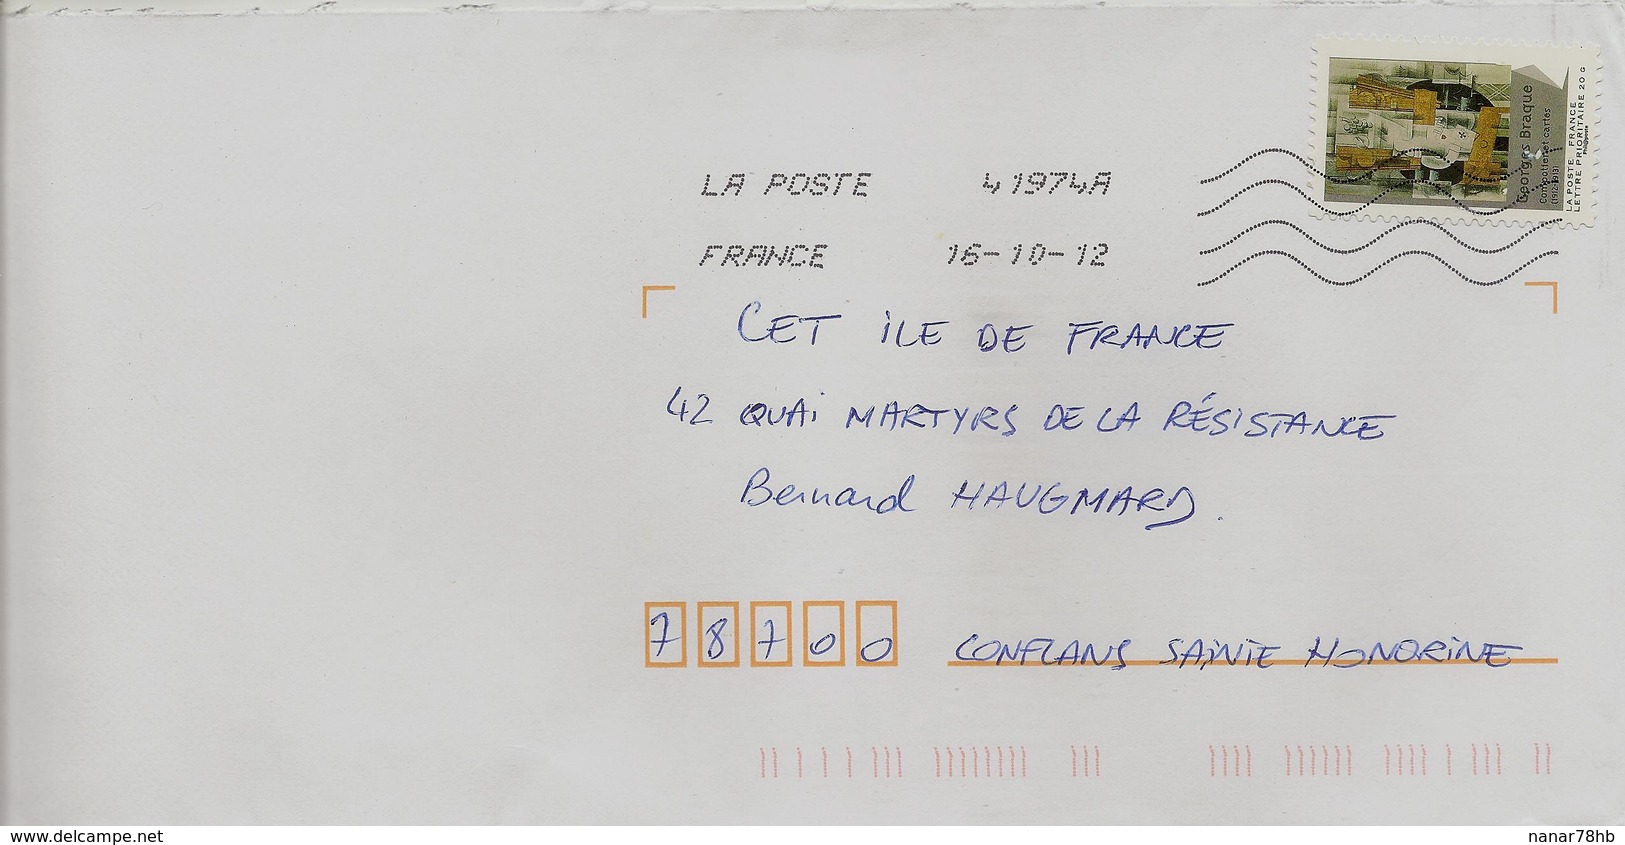 Georges Braque
Compotier et cartes
(1912-1913)
LA POSTE FRANCE
LETTRE PRIORITAIRE 20 G
Phil@poste
LA POSTE 41974A
FRANCE 16-10-12
CET ILE DE FRANCE
42 QUAI MARTYRS DE LA RÉSISTANCE
Bernard HAUGMARD.
78700 CONFLANS SAINTE HONORINE
www.delcampe.net
nanar78hb